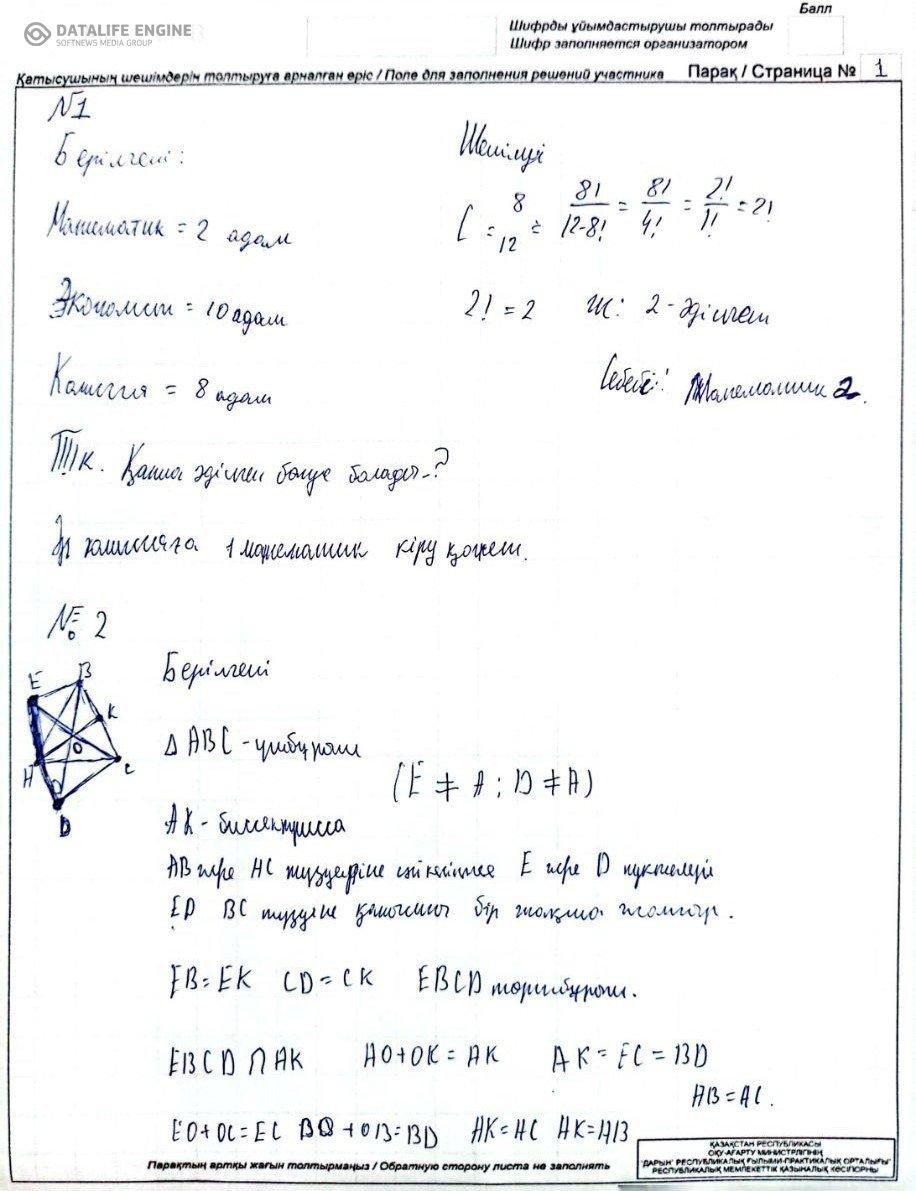 DATALIFE ENGINE
SOFTNEWS MEDIA GROUP
Балл
Шифрды ұйымдастырушы толтырады
Шифр заполняется организатором
Қатысушының шешімдерін толтыруға арналған өріс / Поле для заполнения решений участника
Парақ / Страница № 1
№1
Берілгені:
Шешілуі
Математик = 2 адам
C = 8 12 = 8!/12-8! = 8!/4! = 2!/1! = 2!
Экономист = 10 адам
2! = 2 Ж: 2-әдіспен
Комиссия = 8 адам
Себебі: Математик 2.
Т/к. Қанша әдіспен болуы болады-?
Әр комиссияға 1 математик кіру қажет.
№ 2
E B K O H C D
Берілгені
Δ ABC - үшбұрыш
(E ≠ A ; D ≠ A)
AK - биссектрисса
AB және AC түзулеріне сәйкесінше E және D нүктелері
ED BC түзуіне қатысты бір жақта жатыр.
EB = EK CD = CK EBCD төртбұрыш.
EBCD ∩ AK AO+OK = AK AK = EC = BD
AB = AC.
EO+OC=EC BO+OB=BD AK=AC AK=AB
Парақтың артқы жағын толтырмаңыз / Обратную сторону листа не заполнять
ҚАЗАҚСТАН РЕСПУБЛИКАСЫ
ОҚУ-АҒАРТУ МИНИСТРЛІГІНІҢ
"ДАРЫН" РЕСПУБЛИКАЛЫҚ ҒЫЛЫМИ-ПРАКТИКАЛЫҚ ОРТАЛЫҒЫ"
РЕСПУБЛИКАЛЫҚ МЕМЛЕКЕТТІК ҚАЗЫНАЛЫҚ КӘСІПОРНЫ